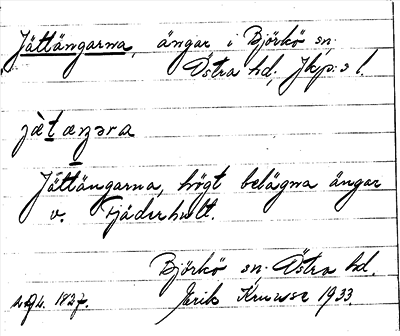 Jättängarna, ängar i Björkö sn.
Östra hd. Jkp:s l.
jä̀tæŋəra
Jättängarna, högt belägna ängar
v. Fjäderhult.
Björkö sn. Östra hd.
1827. Erik Kruuse 1933.